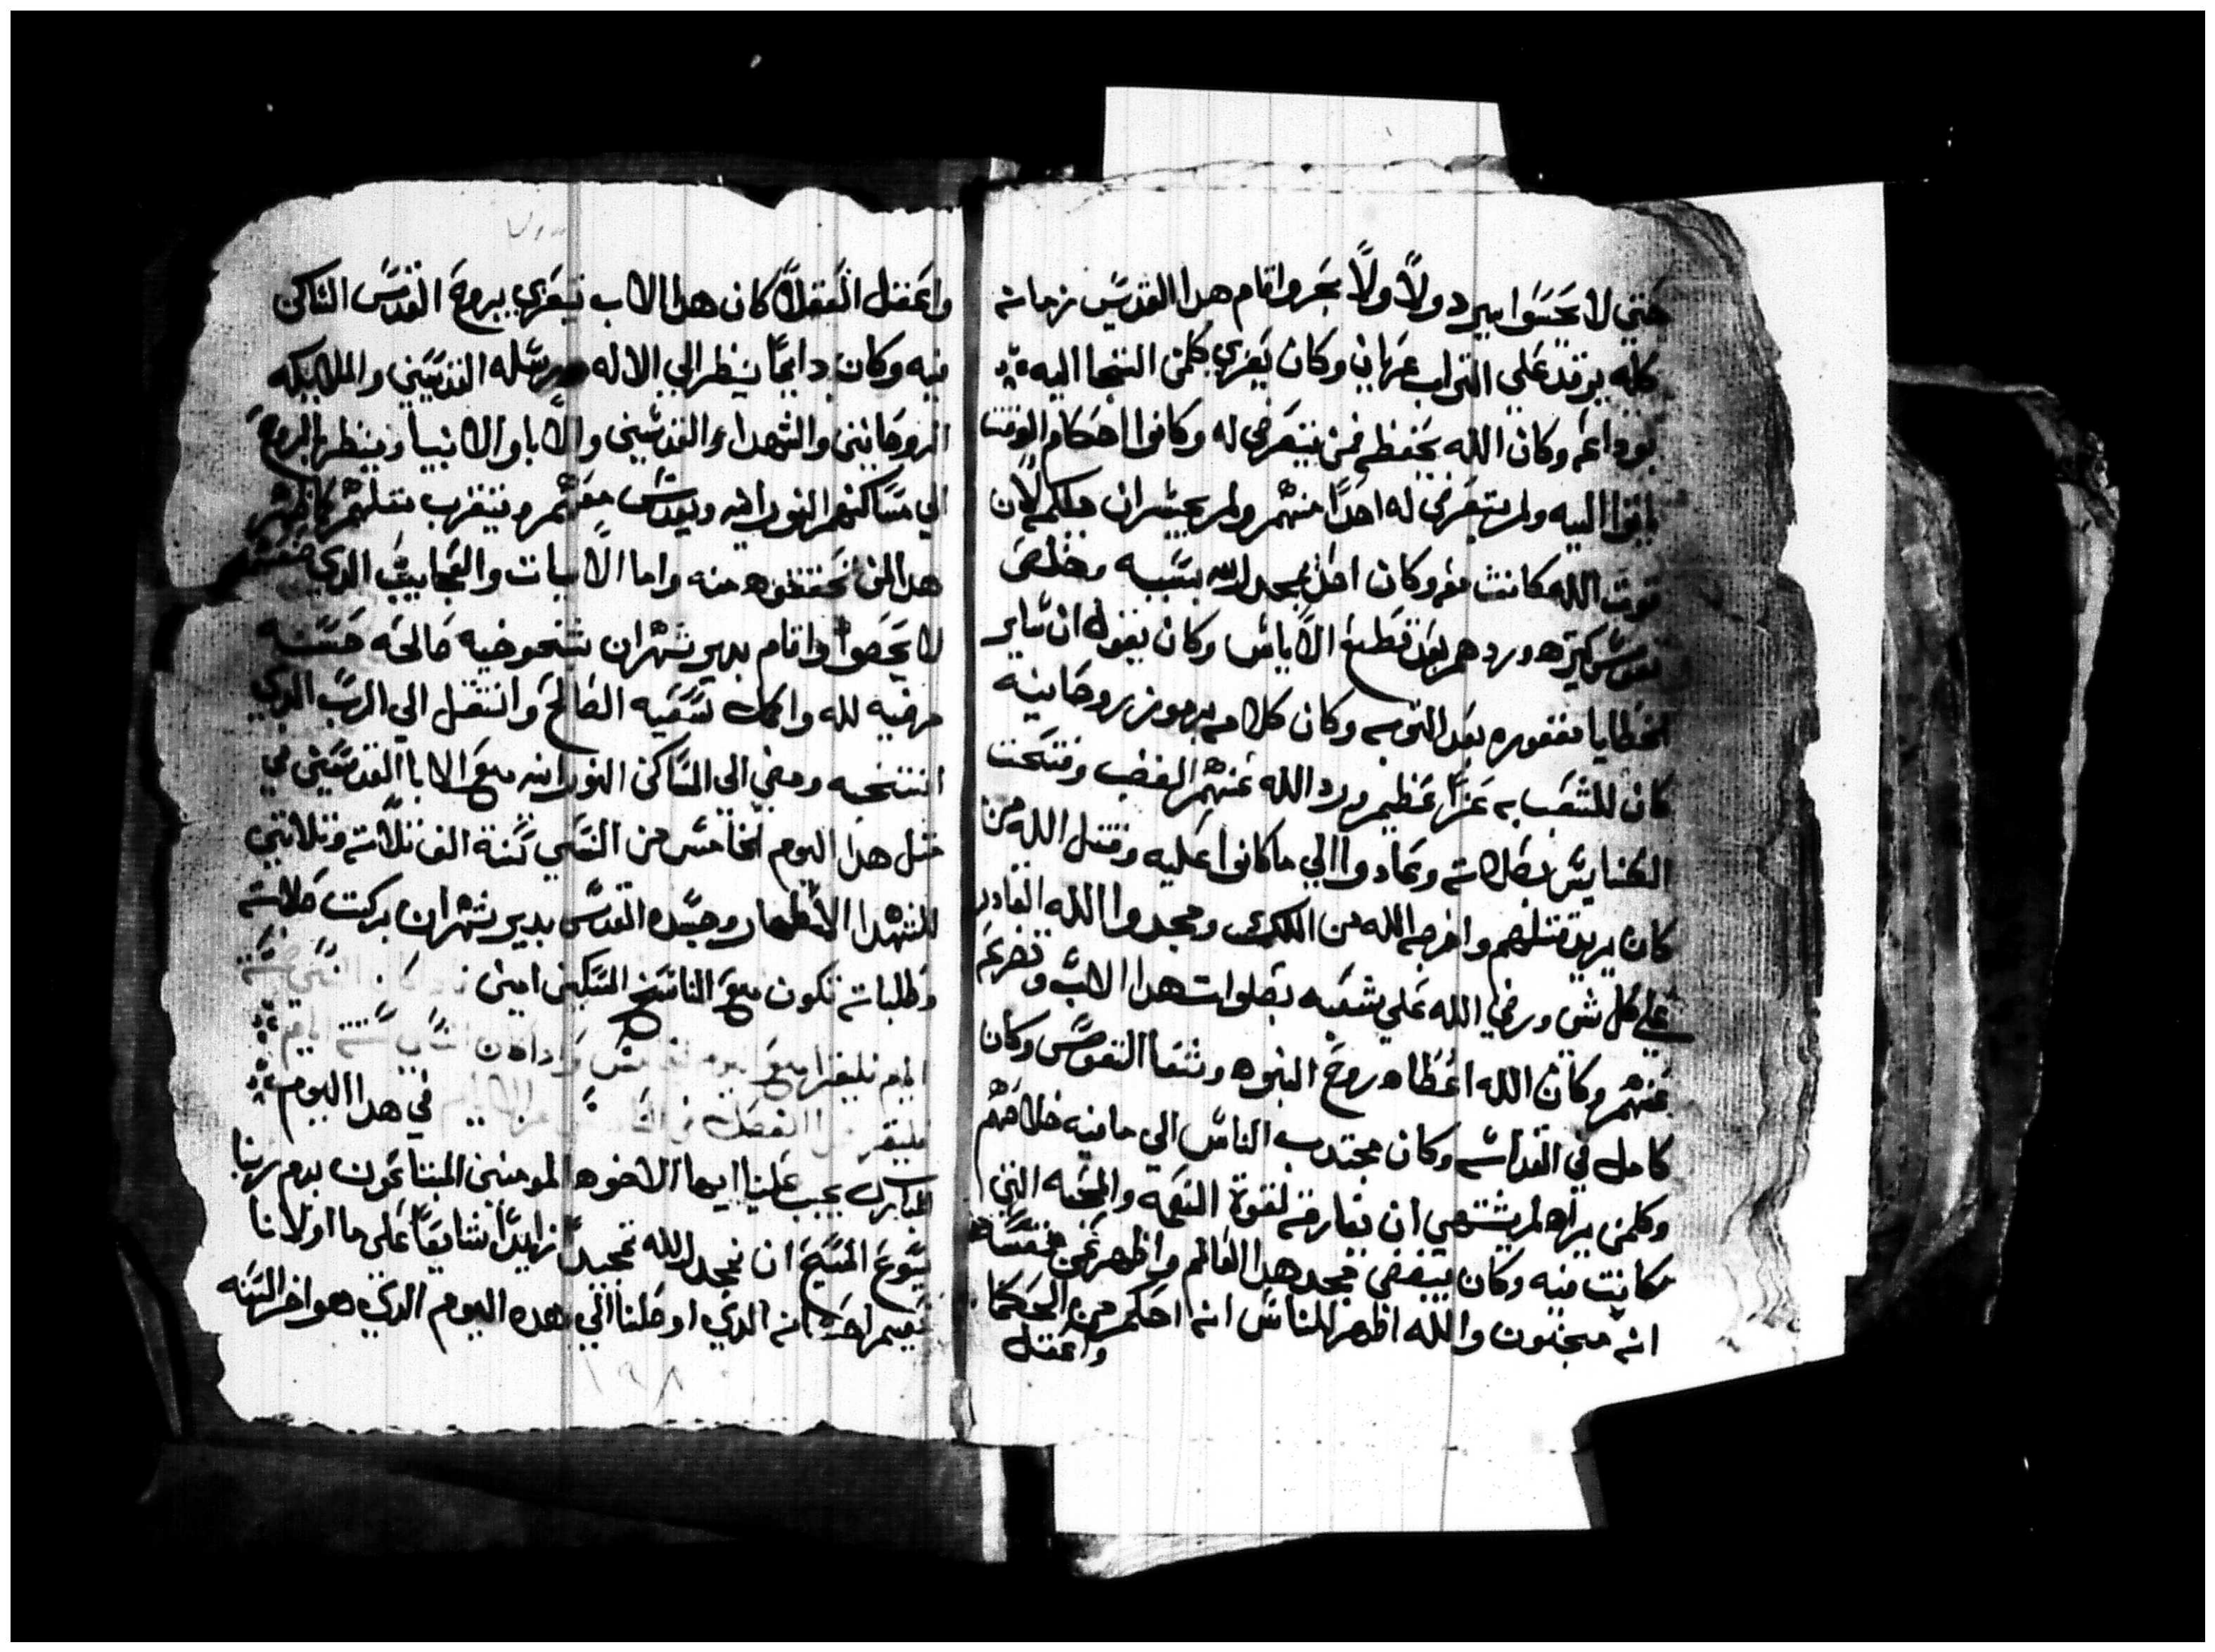 حتي لا يحسوا ببرد ولاً ولاً بحر واقام هدا القديس زمانه
كله يرقد علي التراب عريان وكان يعزي كلمن التجا اليه
بوداعه وكان الله يحفظه فمن يتعرض له وكانوا احكام الوقت
ياتوا اليه ولم يتعرض له احدًا منهم ولم يجسران يكلمه لان
قوت الله كانت معه وكان اهل بمجد الله بسببه وخلص
نفوس كتيره وردهم بعد قطع الاياس وكان يقول ان ساير
الخطايا مغفوره بعد التوبه وكان كلامه برموز روحانيه
كان للشعب به عزاً عظيم ورد الله عنهم الغضب وفتحت
الكنايس بصلاته وعادوا الي ما كانوا عليه وقتل الله من
كان يريد قتلهم واخرجه الله من الملك ومجدوا الله القادر
علي كل شي ورضي الله علي شعبه بصلوات هدا الاب وتضرعه
عنهم وكان الله اعطاه روح النبوه وشفا النفوس وكان
كامل في القداسه وكان يجتدب الناس الي ما فيه خلاصهم
وكلمن يراه لم يشتهي ان يفارقه لقوة النعمه والمحبه التي
كانت فيه وكان يبغض مجد هدا العالم واظهر عن نفسه
انه مجنون والله اظهر للناس انه احكم من الحكما
واعقل
واعقل العقلا كان هدا الاب يتعزي بروح القدس الساكن
فيه وكان دايماً ينظر الي الاله ورسله القديسين والملايكه
الروحانين والشهداء والقديسين والابا والانبيا وينظر بالروح
الي مساكنهم النورانيه ويقدس معهم ويتقرب مثلهم كما ظهر
هدا لمن تحققوه منه واما الايات والعجايب الدي صنعهم
لا يحصوا واقام بدير شهران شيخوخيه صالحه حسنه
مرضيه لله واكمل سعيه الصالح وانتقل الي الرب الدي
انتخبه ومضي الي المساكن النورانيه مع الابا القديسين في
متل هدا اليوم الخامس من النسي سنة الف تلاته وتلاتين
للشهدا الاطهار وجسده المقدس بدير شهران بركت صلاته
وطلباته تكون مع الناسخ المسكين امين
في هدا اليوم
المبارك يجب علينا ايها الاخوه المومنين المبتاعون بدم ربنا
يسوع المسيح ان نمجد الله تمجيداً زايداً شايعاً علي ما اولانا
نعيم لانه الدي اوصلنا الي هده اليوم الدي هو اخر السنه